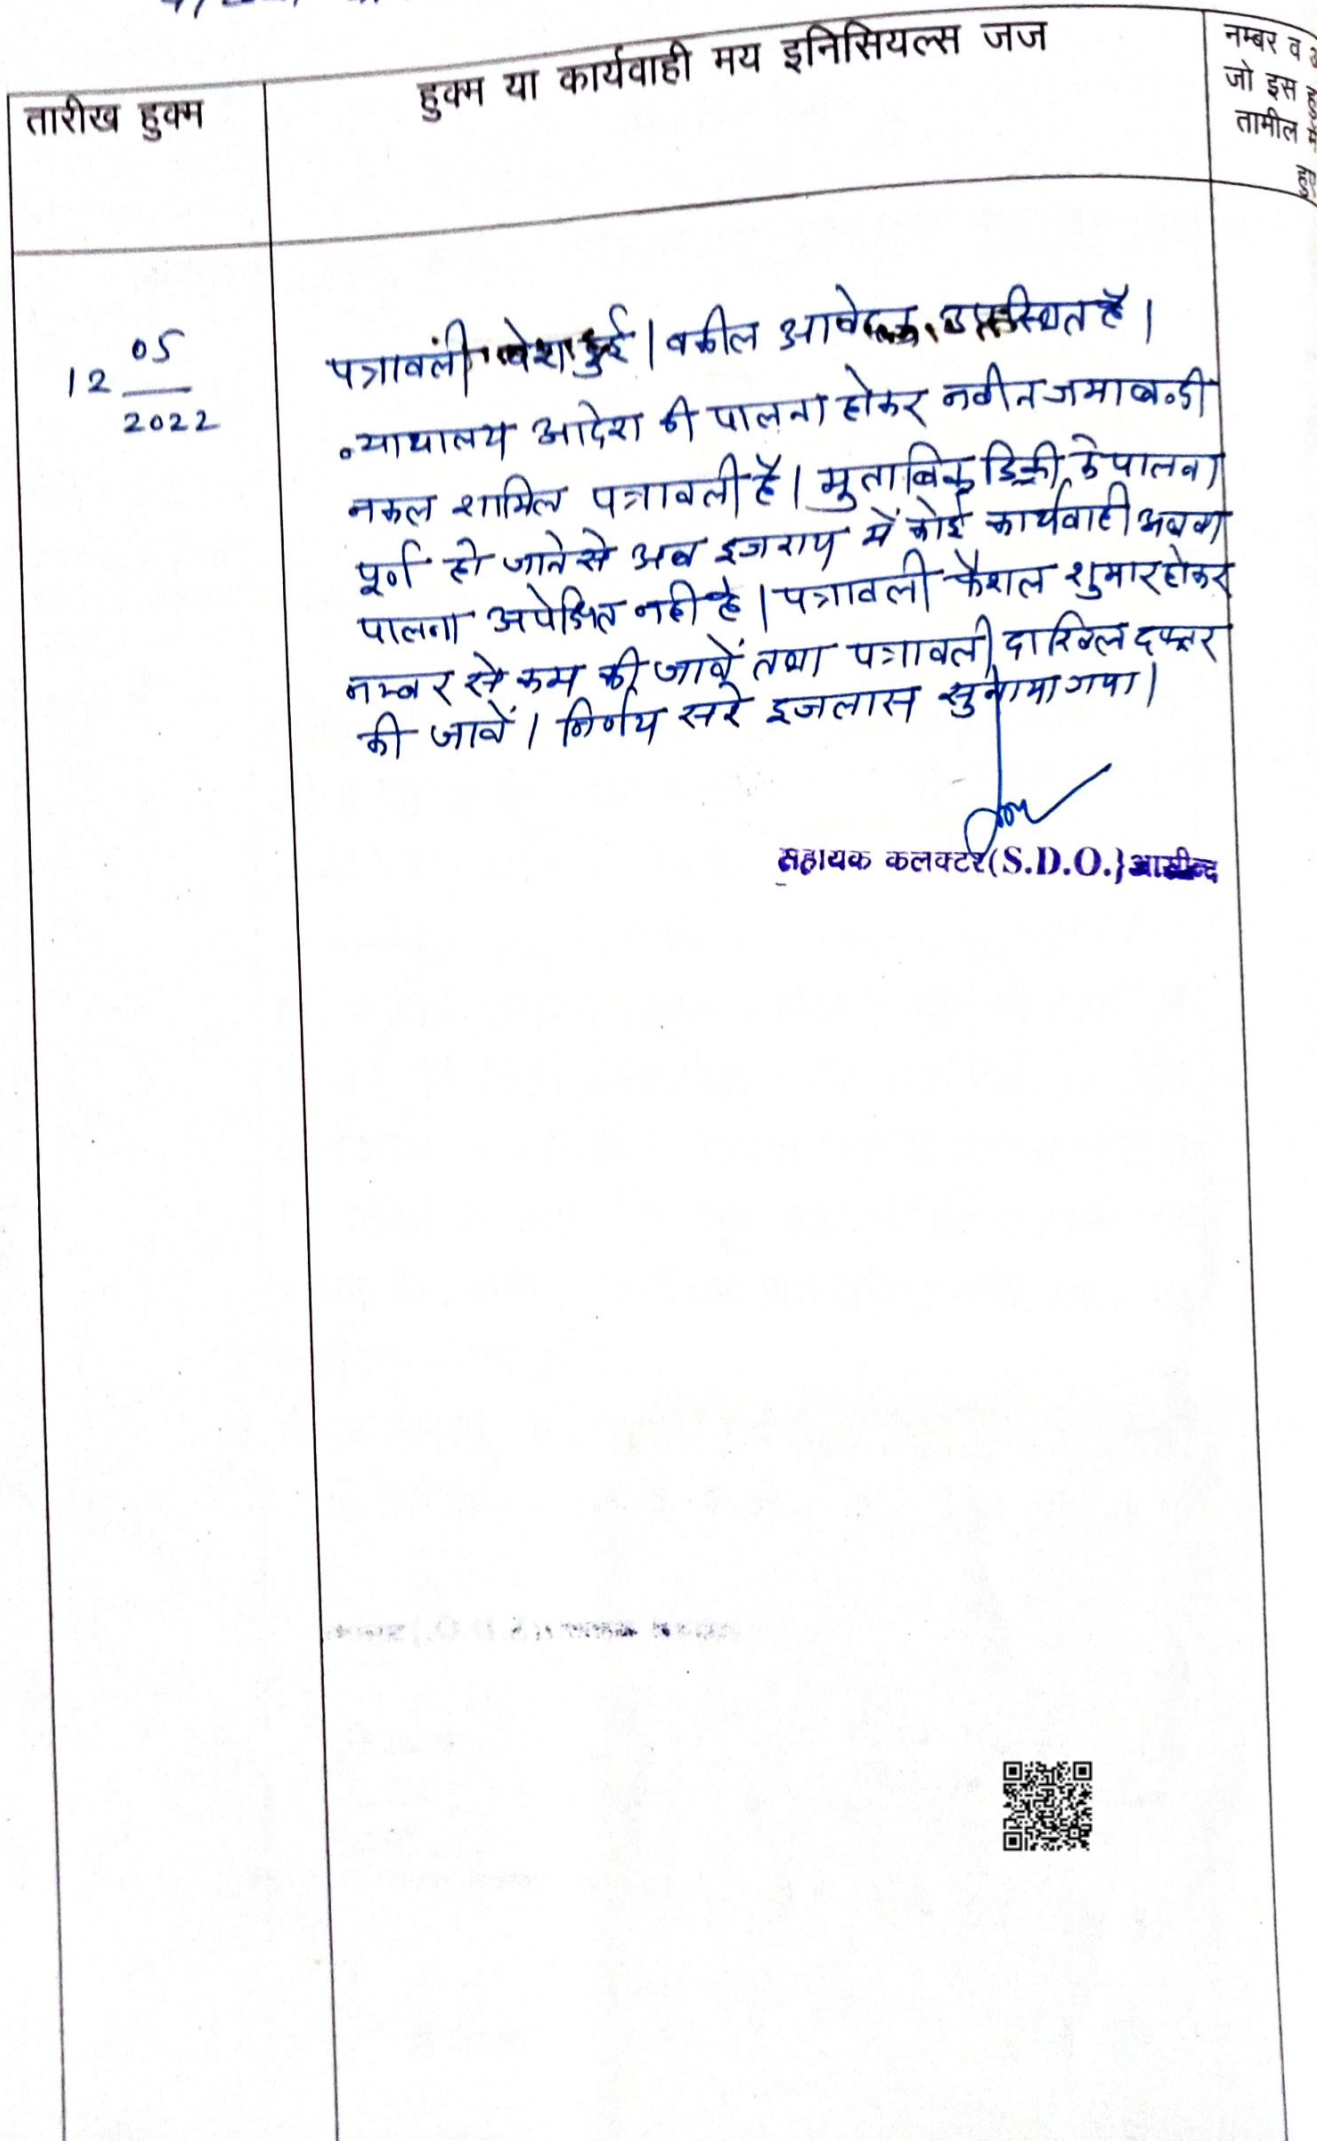 तारीख हुक्म
हुक्म या कार्यवाही मय इनिसियल्स जज
नम्बर व
जो इस
तामील
हुए
12 05
2022
पत्रावली पेश हुई। वकील आवेदक उपस्थित है।
न्यायालय आदेश की पालना होकर नवीन जमाबन्दी
नकल शामिल पत्रावली है। मुताबिक डिक्री के पालना
पूर्ण हो जाने से अब इजराय में कोई कार्यवाही अथवा
पालना अपेक्षित नही है। पत्रावली फैशल शुमार होकर
नम्बर से कम की जावें तथा पत्रावली दाखिल दफ्तर
की जावें। निर्णय सरे इजलास सुनाया गया।
सहायक कलक्टर (S.D.O.) आसीन्द